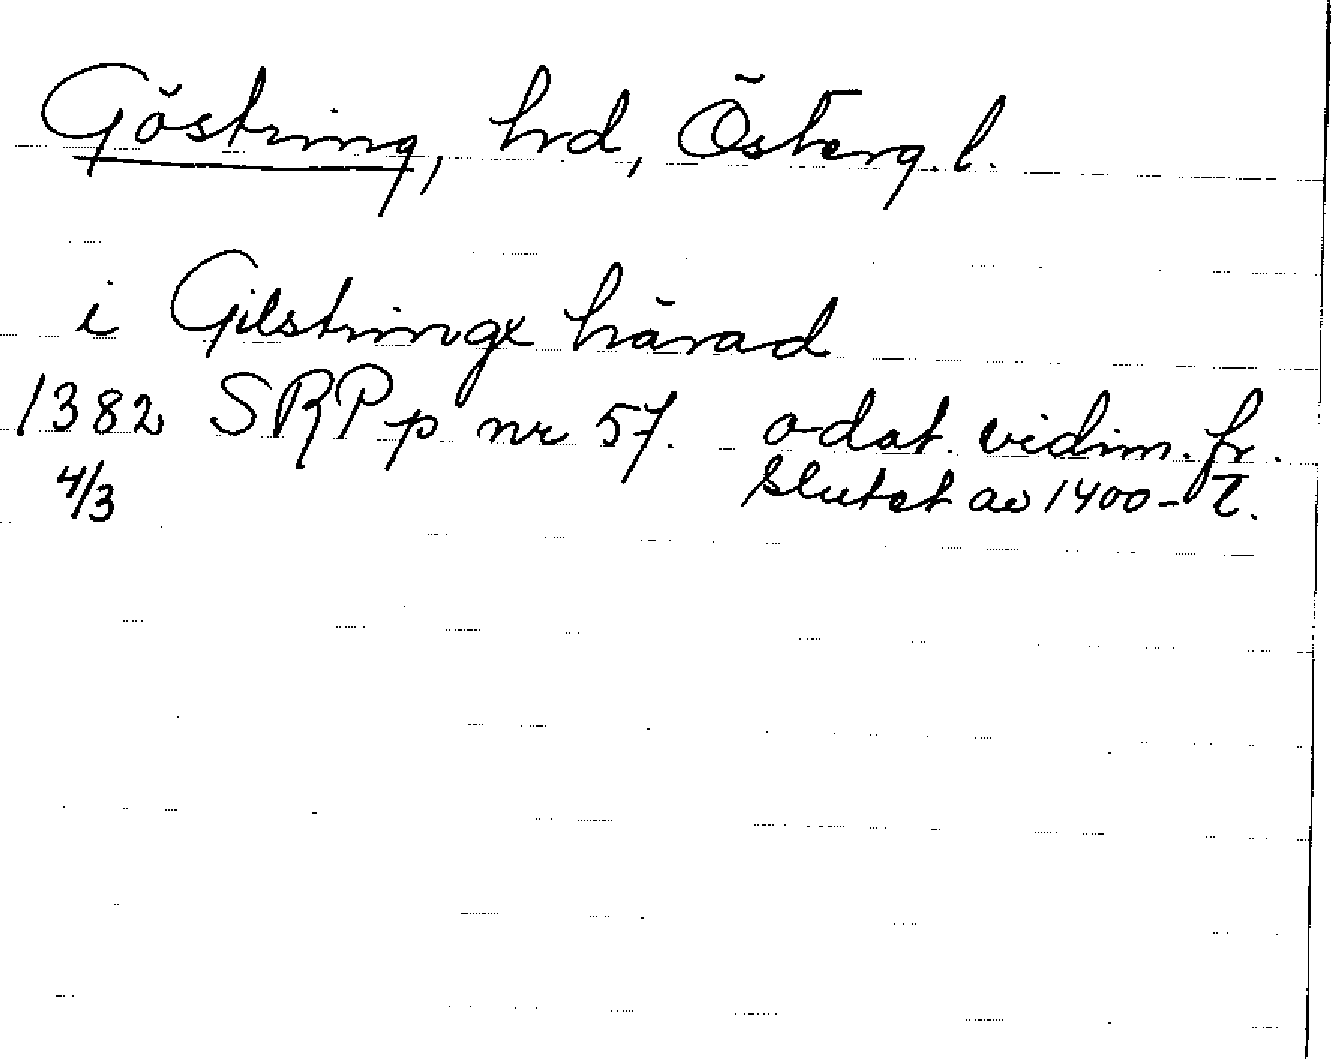 Göstring, hrd, Österg. l.
i Gilstringx härad
1382 SRPp nr 57. odat. vidim. fr.
4/3 slutet av 1400-t.